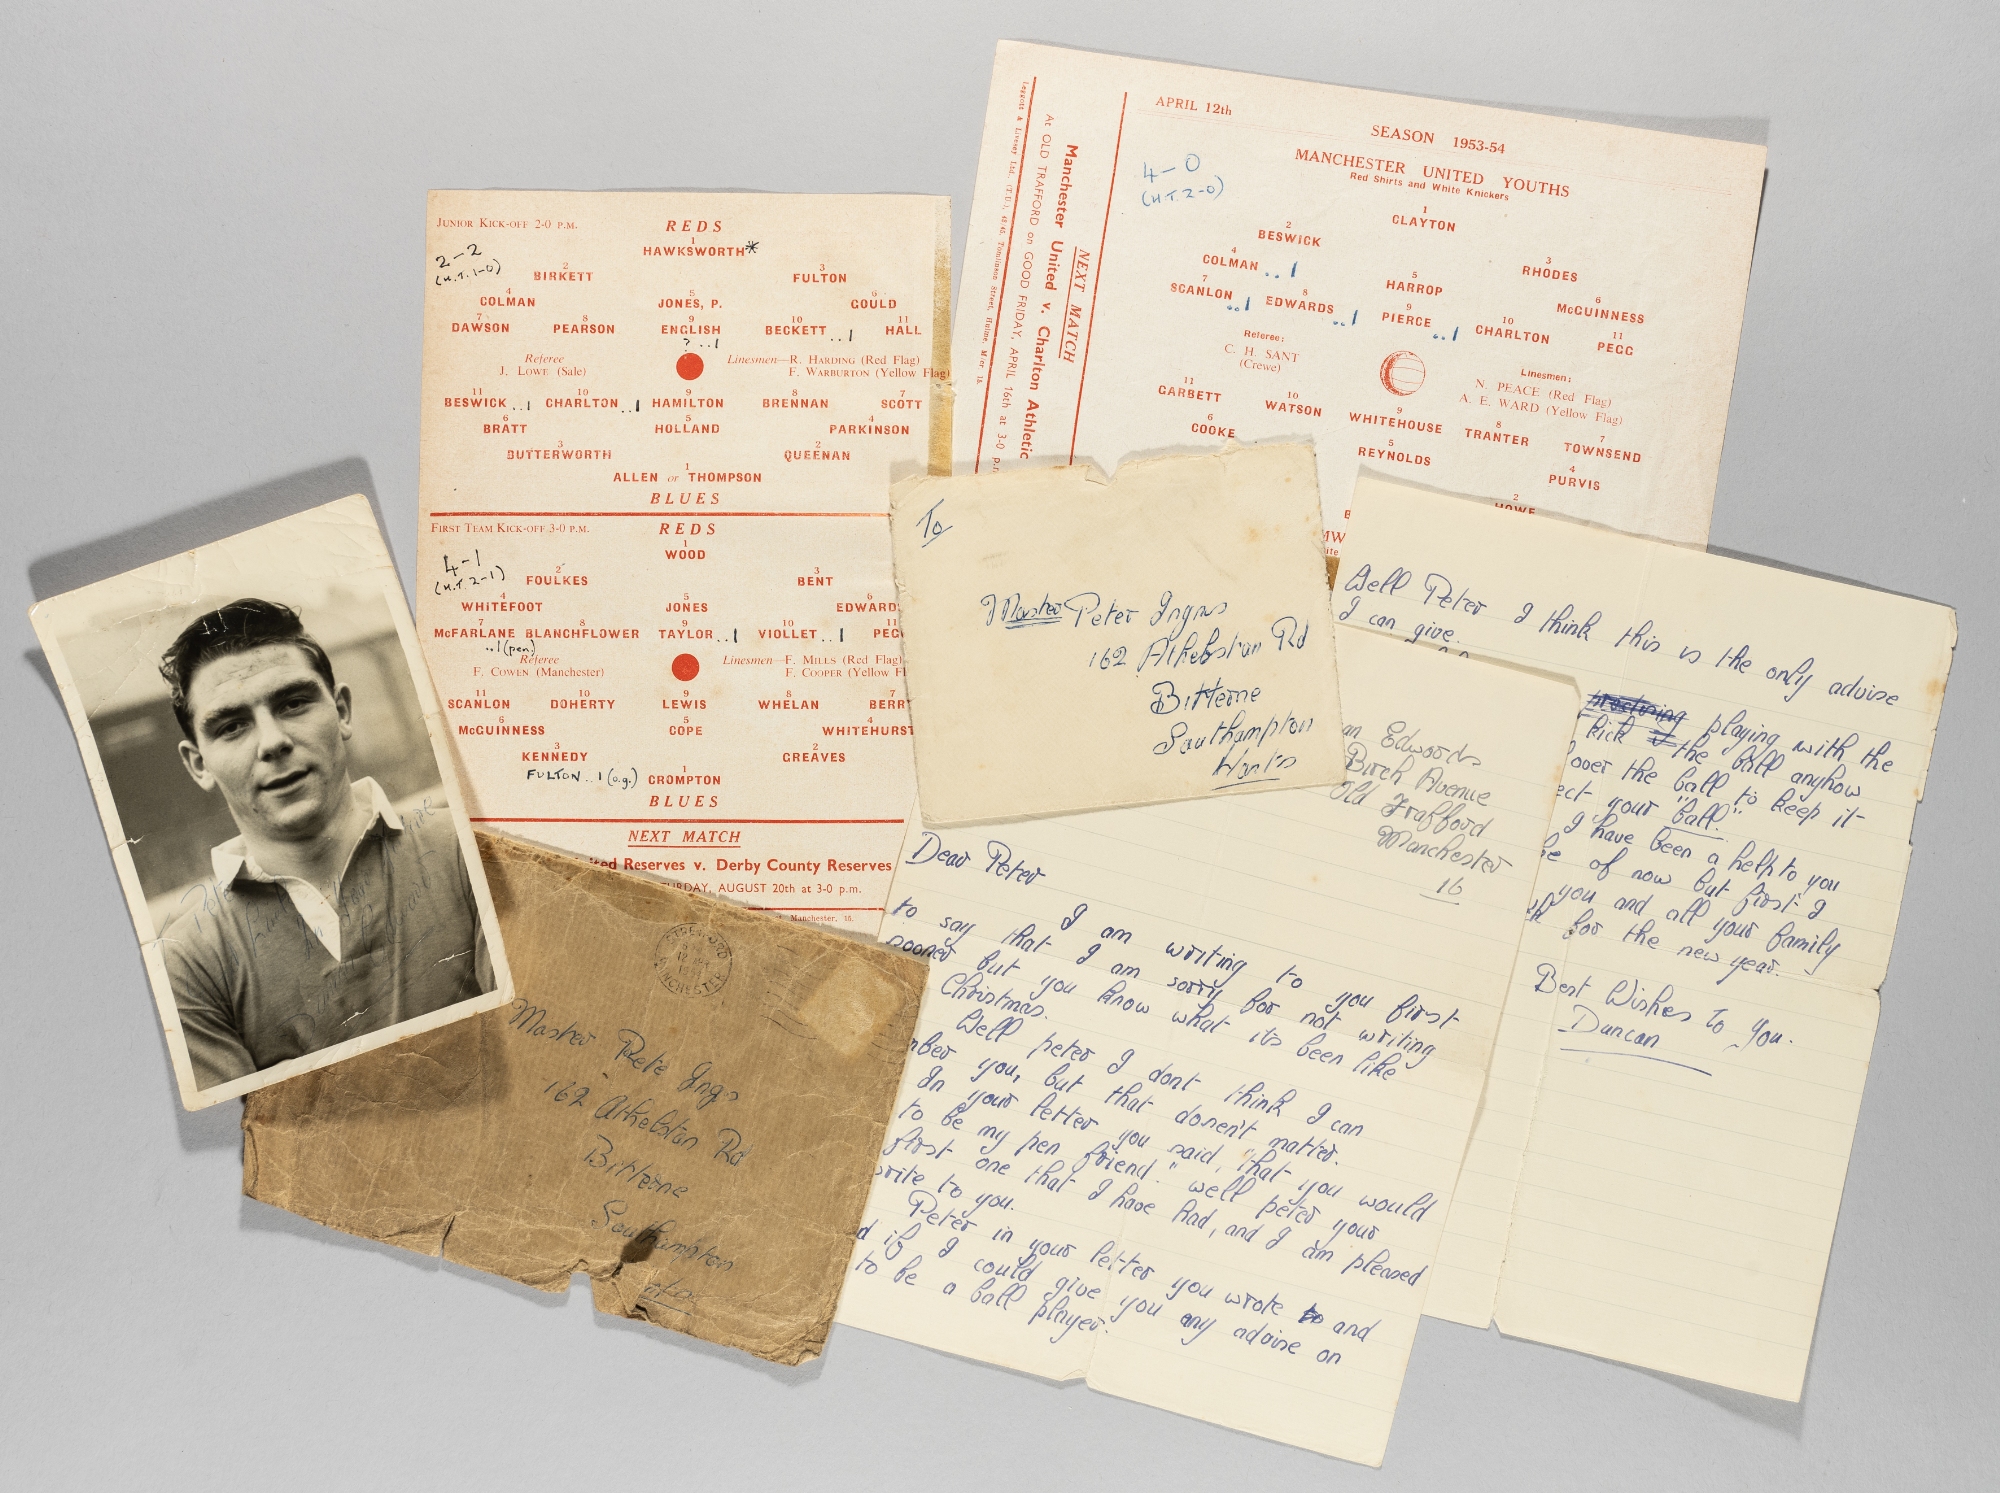 JUNIOR KICK-OFF 2-0 P.M. REDS
1
HAWKSWORTH*
2-2
(H.T. 1-0)
2 3
BIRKETT FULTON
4 5 6
COLMAN JONES, P. GOULD
7 8 9 10 11
DAWSON PEARSON ENGLISH BECKETT..1 HALL
?..1
Referee Linesmen—R. HARDING (Red Flag)
J. LOWE (Sale) F. WARBURTON (Yellow Flag)
11 10 9 8 7
BESWICK..1 CHARLTON..1 HAMILTON BRENNAN SCOTT
6 5 4
BRATT HOLLAND PARKINSON
3 2
BUTTERWORTH QUEENAN
1
ALLEN or THOMPSON
BLUES
FIRST TEAM KICK-OFF 3-0 P.M. REDS
1
WOOD
4-1
(H.T. 2-1)
2 3
FOULKES BENT
4 5
WHITEFOOT JONES EDWARDS
7 8 9 10
McFARLANE BLANCHFLOWER TAYLOR..1 VIOLLET..1 PEG
..1(pen)
Referee Linesmen—F. MILLS (Red Flag)
F. COWEN (Manchester) F. COOPER (Yellow Fl
11 10 9 8 7
SCANLON DOHERTY LEWIS WHELAN BERRY
6 5 4
McGUINNESS COPE WHITEHURST
3 2
KENNEDY GREAVES
FULTON..1(o.g.)
1
CROMPTON
BLUES
NEXT MATCH
ted Reserves v. Derby County Reserves
URDAY, AUGUST 20th at 3-0 p.m.
Manchester, 15.
APRIL 12th
SEASON 1953-54
MANCHESTER UNITED YOUTHS
Red Shirts and White Knickers
4-0
(H.T. 2-0)
1
CLAYTON
2 3
BESWICK RHODES
4 5 6
COLMAN..1 HARROP McGUINNESS
7 8 9 10 11
SCANLON..1 EDWARDS..1 PIERCE..1 CHARLTON PEGG
Referee: Linesmen:
C. H. SANT N. PEACE (Red Flag)
(Crewe) A. E. WARD (Yellow Flag)
11 10 9 8 7
GARBETT WATSON WHITEHOUSE TRANTER TOWNSEND
6 5 4
COOKE REYNOLDS PURVIS
2
HOWE
B
MW
NEXT MATCH
Manchester United v. Charlton Athletic
At OLD TRAFFORD on GOOD FRIDAY, APRIL 16th at 3-0 p.m
To
Master Peter Ingns
162 Athelstan Rd
Bitterne
Southampton
Hants
Master Pete Ings
162 Athelstan Rd
Bitterne
Southampton
STRETFORD
MANCHESTER
Peter
Duncan Edwards
an Edwards
Birch Avenue
Old Trafford
Manchester
16
Dear Peter
I am writing to you first
to say that I am sorry for not writing
sooner but you know what its been like
Christmas.
Well peter I dont think I can
mber you, but that dosen't matter.
In your letter you said, "that you would
to be my pen friend." well peter your
first one that I have had, and I am pleased
write to you.
Peter in your letter you wrote to and
d if I could give you any advise on
to be a ball player.
Well Peter I think this is the only advise
I can give.
playing with the
kick the ball anyhow
over the ball to keep it
ect your "ball".
I have been a help to you
be of now but first I
you and all your family
for the new year.
Best Wishes To you.
Duncan